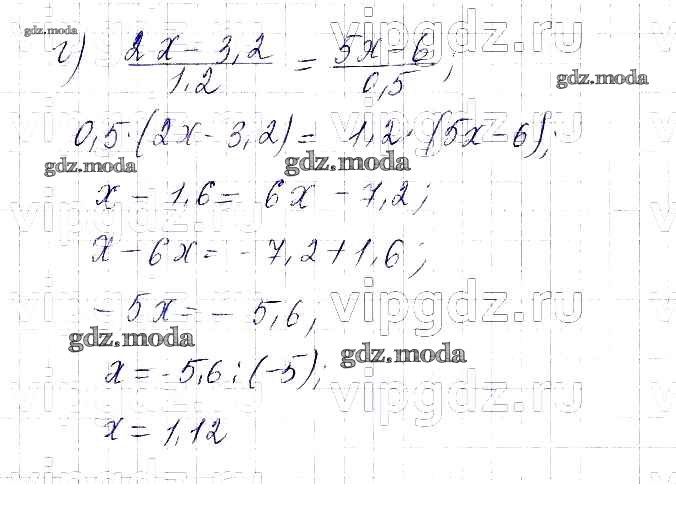 gdz.moda
vipgdz.ru
г) (2x - 3,2)/1,2 = (5x - 6)/0,5;
gdz.moda
0,5·(2x - 3,2) = 1,2·(5x - 6);
gdz.moda gdz.moda
x - 1,6 = 6x - 7,2;
vipgdz.ru vipgdz.ru
x - 6x = -7,2 + 1,6;
-5x = -5,6;
vipgdz.ru vipgdz.ru
gdz.moda gdz.moda
x = -5,6 : (-5);
vipgdz.ru vipgdz.ru
x = 1,12